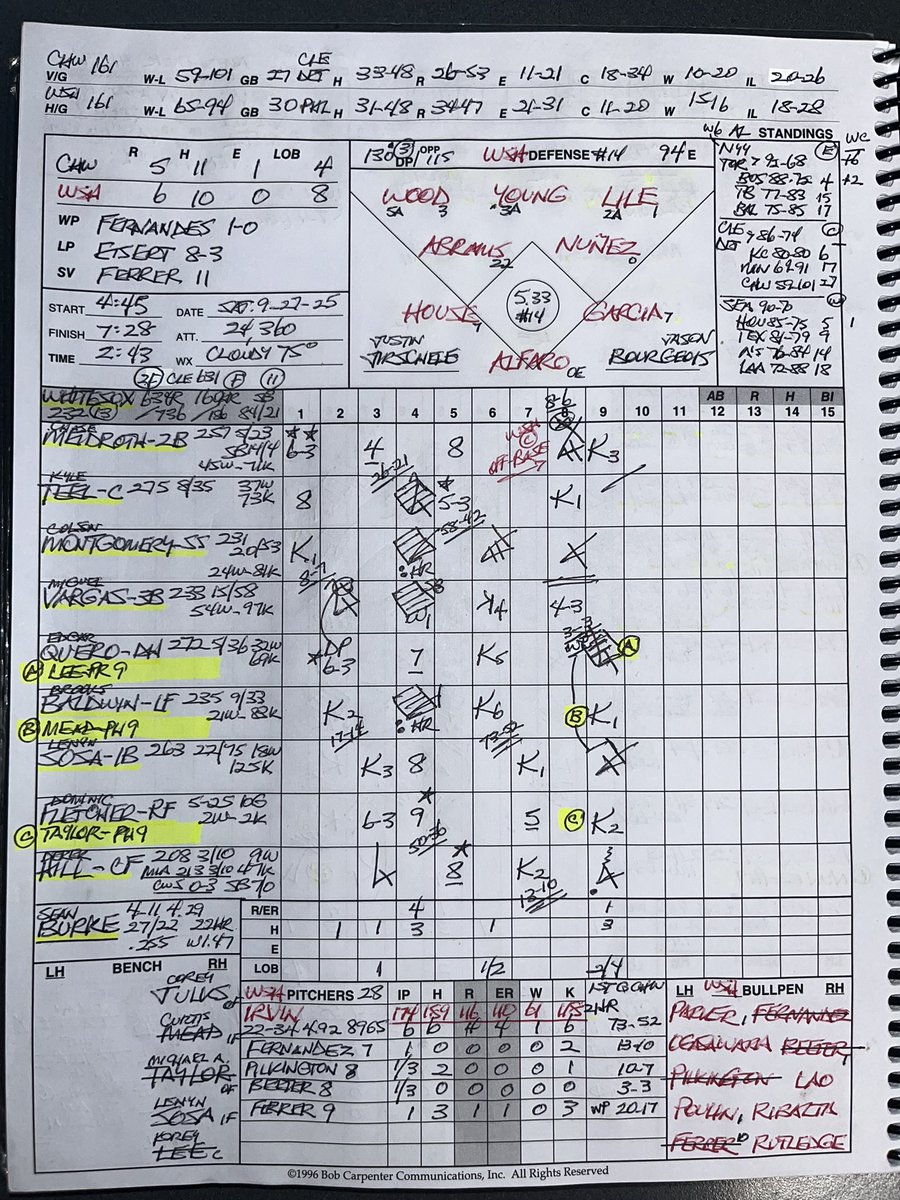 CHW 161
V/G W-L 59-101 GB 27 CLE DET H 33-48 R 26-53 E 11-21 C 18-34 W 10-20 IL 20-26
WSH 161
H/G W-L 65-94 GB 30 PHL H 31-48 R 34-47 E 21-31 C 11-20 W 15-16 IL 18-28
R H E LOB
CHW 5 11 1 4
WSH 6 10 0 8
WP FERNANDES 1-0
LP EISERT 8-3
SV FERRER 11
START 4:45 DATE SAT. 9-27-25
FINISH 7:28 ATT. 24,360
TIME 2:43 WX CLOUDY 75°
130 DP/OPP 115 WSH DEFENSE #14 94 E
WOOD YOUNG LILE
5A 3 3A 2A 1
ABRAMS NUÑEZ
22 0
HOUSE 5.33 #14 GARCIA 7
JUSTIN JIRSCHELE ALFARO JASON BOURGEOIS
AL STANDINGS WC
NYY
TOR 91-68
BOS 88-72 4 +2
TB 77-83 15
BAL 75-85 17
CLE 86-74
DET
KC 80-80 6
MIN 69-91 17
CHW 59-101 27
SEA 90-70
HOU 85-75 5 1
TEX 81-79 9
A'S 76-84 14
LAA 72-88 18
CLE 631
WHITESOX 634R 160HR SB
232 13 /736 /186 84/21
1 2 3 4 5 6 7 8 9 10 11 12 13 14 15
AB R H BI
CHASE
MEIDROTH-2B 257 5/23
SB 14/4
45W-71K
6-3 4 8 K3
WSH C OFF BASE
8-6
KYLE
TEEL-C 275 8/35 37W
73K
8 26-21 5-3 K1
COLSON
MONTGOMERY-SS 231
20/53
24W-81K
K1 HR 58-42
MIGUEL
VARGAS-3B 233 15/58
54W-97K
8-7 4-3
EDGAR
QUERO-DH 272 5/36 32W
69K
A LEE-PR9
DP 6-3 7 K5 A
BROOKS
BALDWIN-LF 235 9/33
21W-82K
B MEAD-PH9
K2 17-14 HR K6 73-52 B K1
LENYN
SOSA-1B 263 22/75 18W
125K
K3 8 K1
DOMINIC
FLETCHER-RF 5-25 10G
2W-2K
C TAYLOR-PH9
6-3 9 50-36 5 C K2
DEREK
HILL-CF 208 3/10 9W
MIA 213 3/10 47K
CWS 0-3 SB 7/0
8 K2 13-10
SEAN
BURKE 4-11 4.29
27/22 22HR
.255 W1.47
R/ER 4 1
H 1 1 3 1 3
E
LOB 1 1/2 2/4
LH BENCH RH
COREY
JULKS OF
CURTIS
MEAD IF
MICHAEL A.
TAYLOR OF
LENYN
SOSA IF
KOREY
LEE C
WSH PITCHERS 28 IP H R ER W K
IRVIN 174 159 116 110 61 115
22-34 4.92 8965 6 6 4 4 1 6 2HR 73-52
FERNANDEZ 7 1 0 0 0 0 2 13-10
PILKINGTON 8 1/3 2 0 0 0 1 10-7
BEETER 8 1/3 0 0 0 0 0 3-3
FERRER 9 1 3 1 1 0 3 WP 20-17
LH WSH BULLPEN RH
PARKER, FERNANDEZ
OGASAWARA BEETER,
PILKINGTON LAO
POULIN, RIBALTA
FERRER RUTLEDGE
©1996 Bob Carpenter Communications, Inc. All Rights Reserved